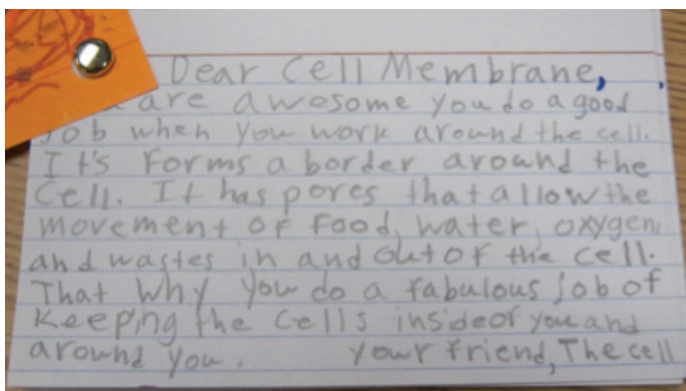 Dear Cell Membrane,
are awesome you do a good
Job when you work around the cell.
It's Forms a border around the
Cell. It has pores that allow the
movement of Food, water, oxygen,
and wastes in and out of the cell.
That why you do a fabulous job of
Keeping the cells inside of you and
around you. your friend, The cell